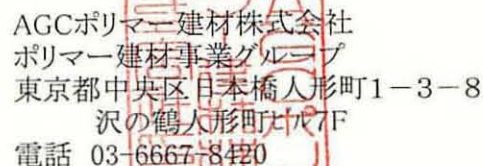 AGCポリマー建材株式会社
ポリマー建材事業グループ
東京都中央区日本橋人形町1－3－8
沢の鶴人形町ビル7F
電話 03-6667-8420